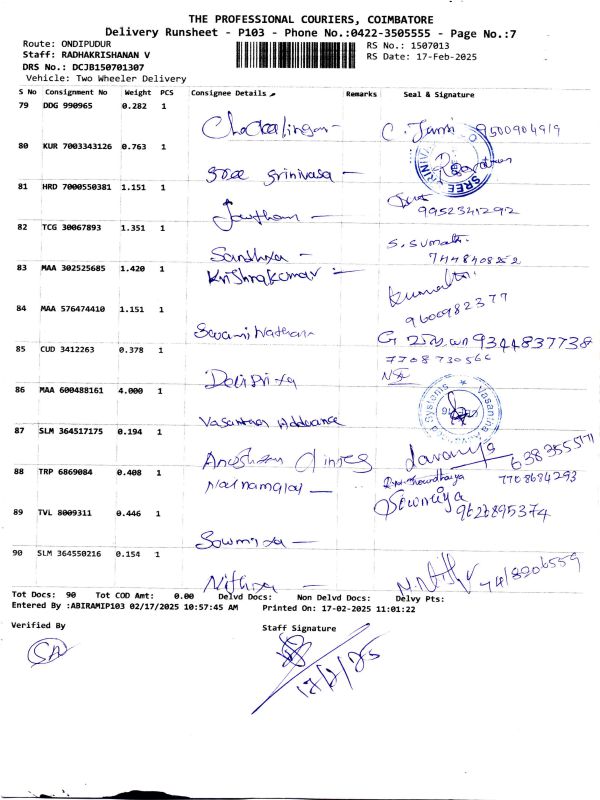 THE PROFESSIONAL COURIERS, COIMBATORE
Delivery Runsheet - P103 - Phone No.:0422-3505555 - Page No.:7
Route: ONDIPUDUR
Staff: RADHAKRISHANAN V
DRS No.: DCJB150701307
Vehicle: Two Wheeler Delivery
RS No.: 1507013
RS Date: 17-Feb-2025
S No Consignment No Weight PCS Consignee Details Remarks Seal & Signature
79 DDG 990965 0.282 1
Chockalingam - 9500904919
80 KUR 7003343126 0.763 1
Sree Srinivasa -
81 HRD 7000550381 1.151 1
Gowtham - 9952341292
82 TCG 30067893 1.351 1
Sandhya - S. Sumathi. 7448408252
83 MAA 302525685 1.420 1
Krishnakumar - 9600982377
84 MAA 576474410 1.151 1
Swaminathan 9344837738
85 CUD 3412263 0.378 1
7708730566
86 MAA 600488161 4.000 1
Vasantaa Advance
87 SLM 364517175 0.194 1
Lavanya 6383555171
88 TRP 6869084 0.408 1
7708684293
89 TVL 8009311 0.446 1
Sowmiya - Sowmiya 9626895374
90 SLM 364550216 0.154 1
Nithya -
Tot Docs: 90 Tot COD Amt: 0.00 Delvd Docs: Non Delvd Docs: Delvy Pts:
Entered By :ABIRAMIP103 02/17/2025 10:57:45 AM Printed On: 17-02-2025 11:01:22
Verified By Staff Signature
17/2/25